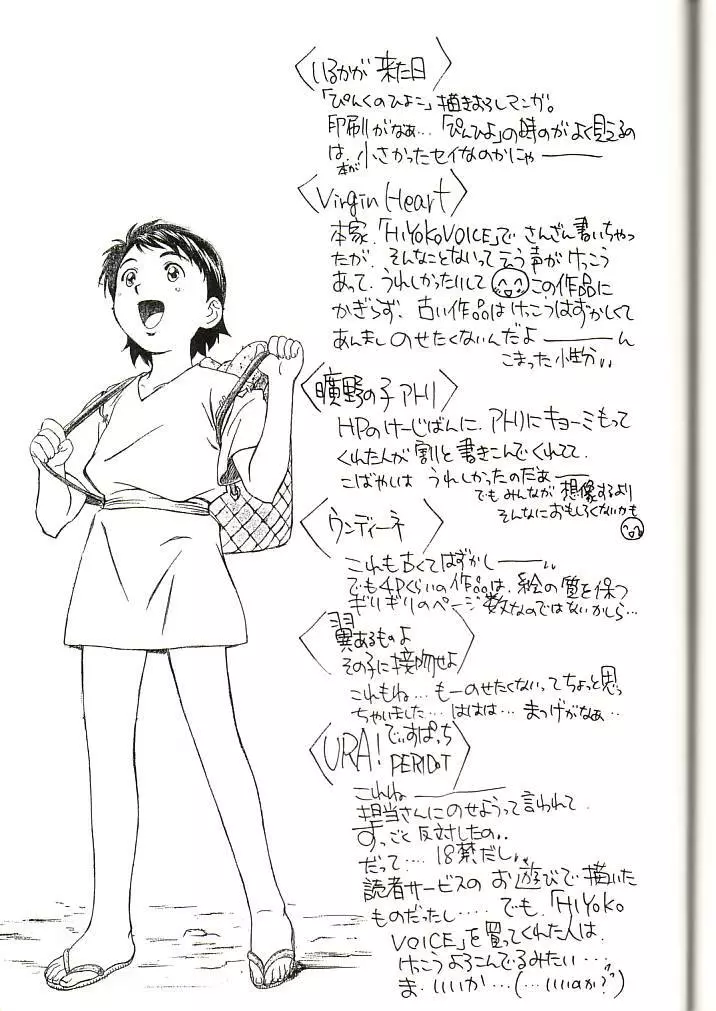 いるかが 来た日
「ぴんくのひよこ」描きおろしマンガ。
印刷がなぁ…「ぴんひよ」の時のがよく見えるの
は、本が小さかったセイなのかにゃ———
Virgin Heart
本家、「HiYOKO VOICE」で さんざん書いちゃっ
たが、そんなことないって言う声がけっこう
あって、うれしかったりして この作品に
かぎらず、古い作品はけっこうはずかしくて
あんまし のせたくないんだよ———ん
こまった小性分
曠野の子 アハリ
HPのけーじばんに、アハリにキョーミもって
くれた人が 割と 書きこんでくれてて、
こばやしは うれしかったのだぁ——
でも みんなが 想像するより
そんなにおもしろくないかも
ウンディーネ
これも古くてはずかし———
でも4Pくらいの作品は、絵の質を保つ
ギリギリのページ数なのではないかしら…
翼あるものよ
その子に接吻せよ
これもね… もーのせたくないってちょっと思っ
ちゃいました… ははは… まつげがなぁ‥
URA! でぃすぱっち
PERIDOT
これね————
担当さんにのせようって言われて
すっごく反対したの
だって…. 18禁だし
読者サービスの お遊びで描いた
ものだったし‥‥. でも、「HiYOKO
VOICE」を買ってくれた人は、
けっこうよろこんでるみたい…
ま、いいか…(… いいのか?)